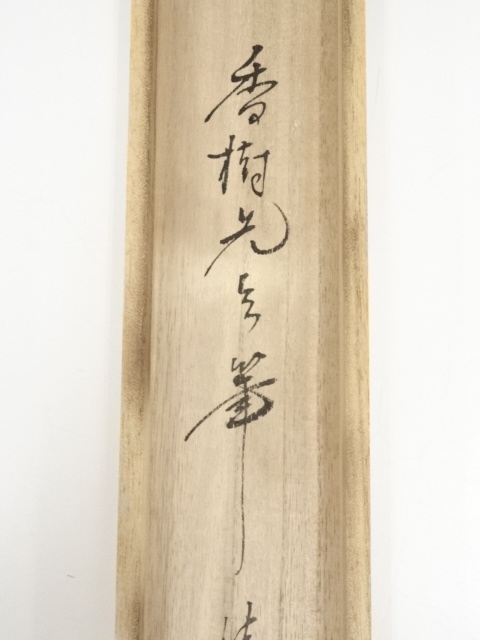 香樹先生筆